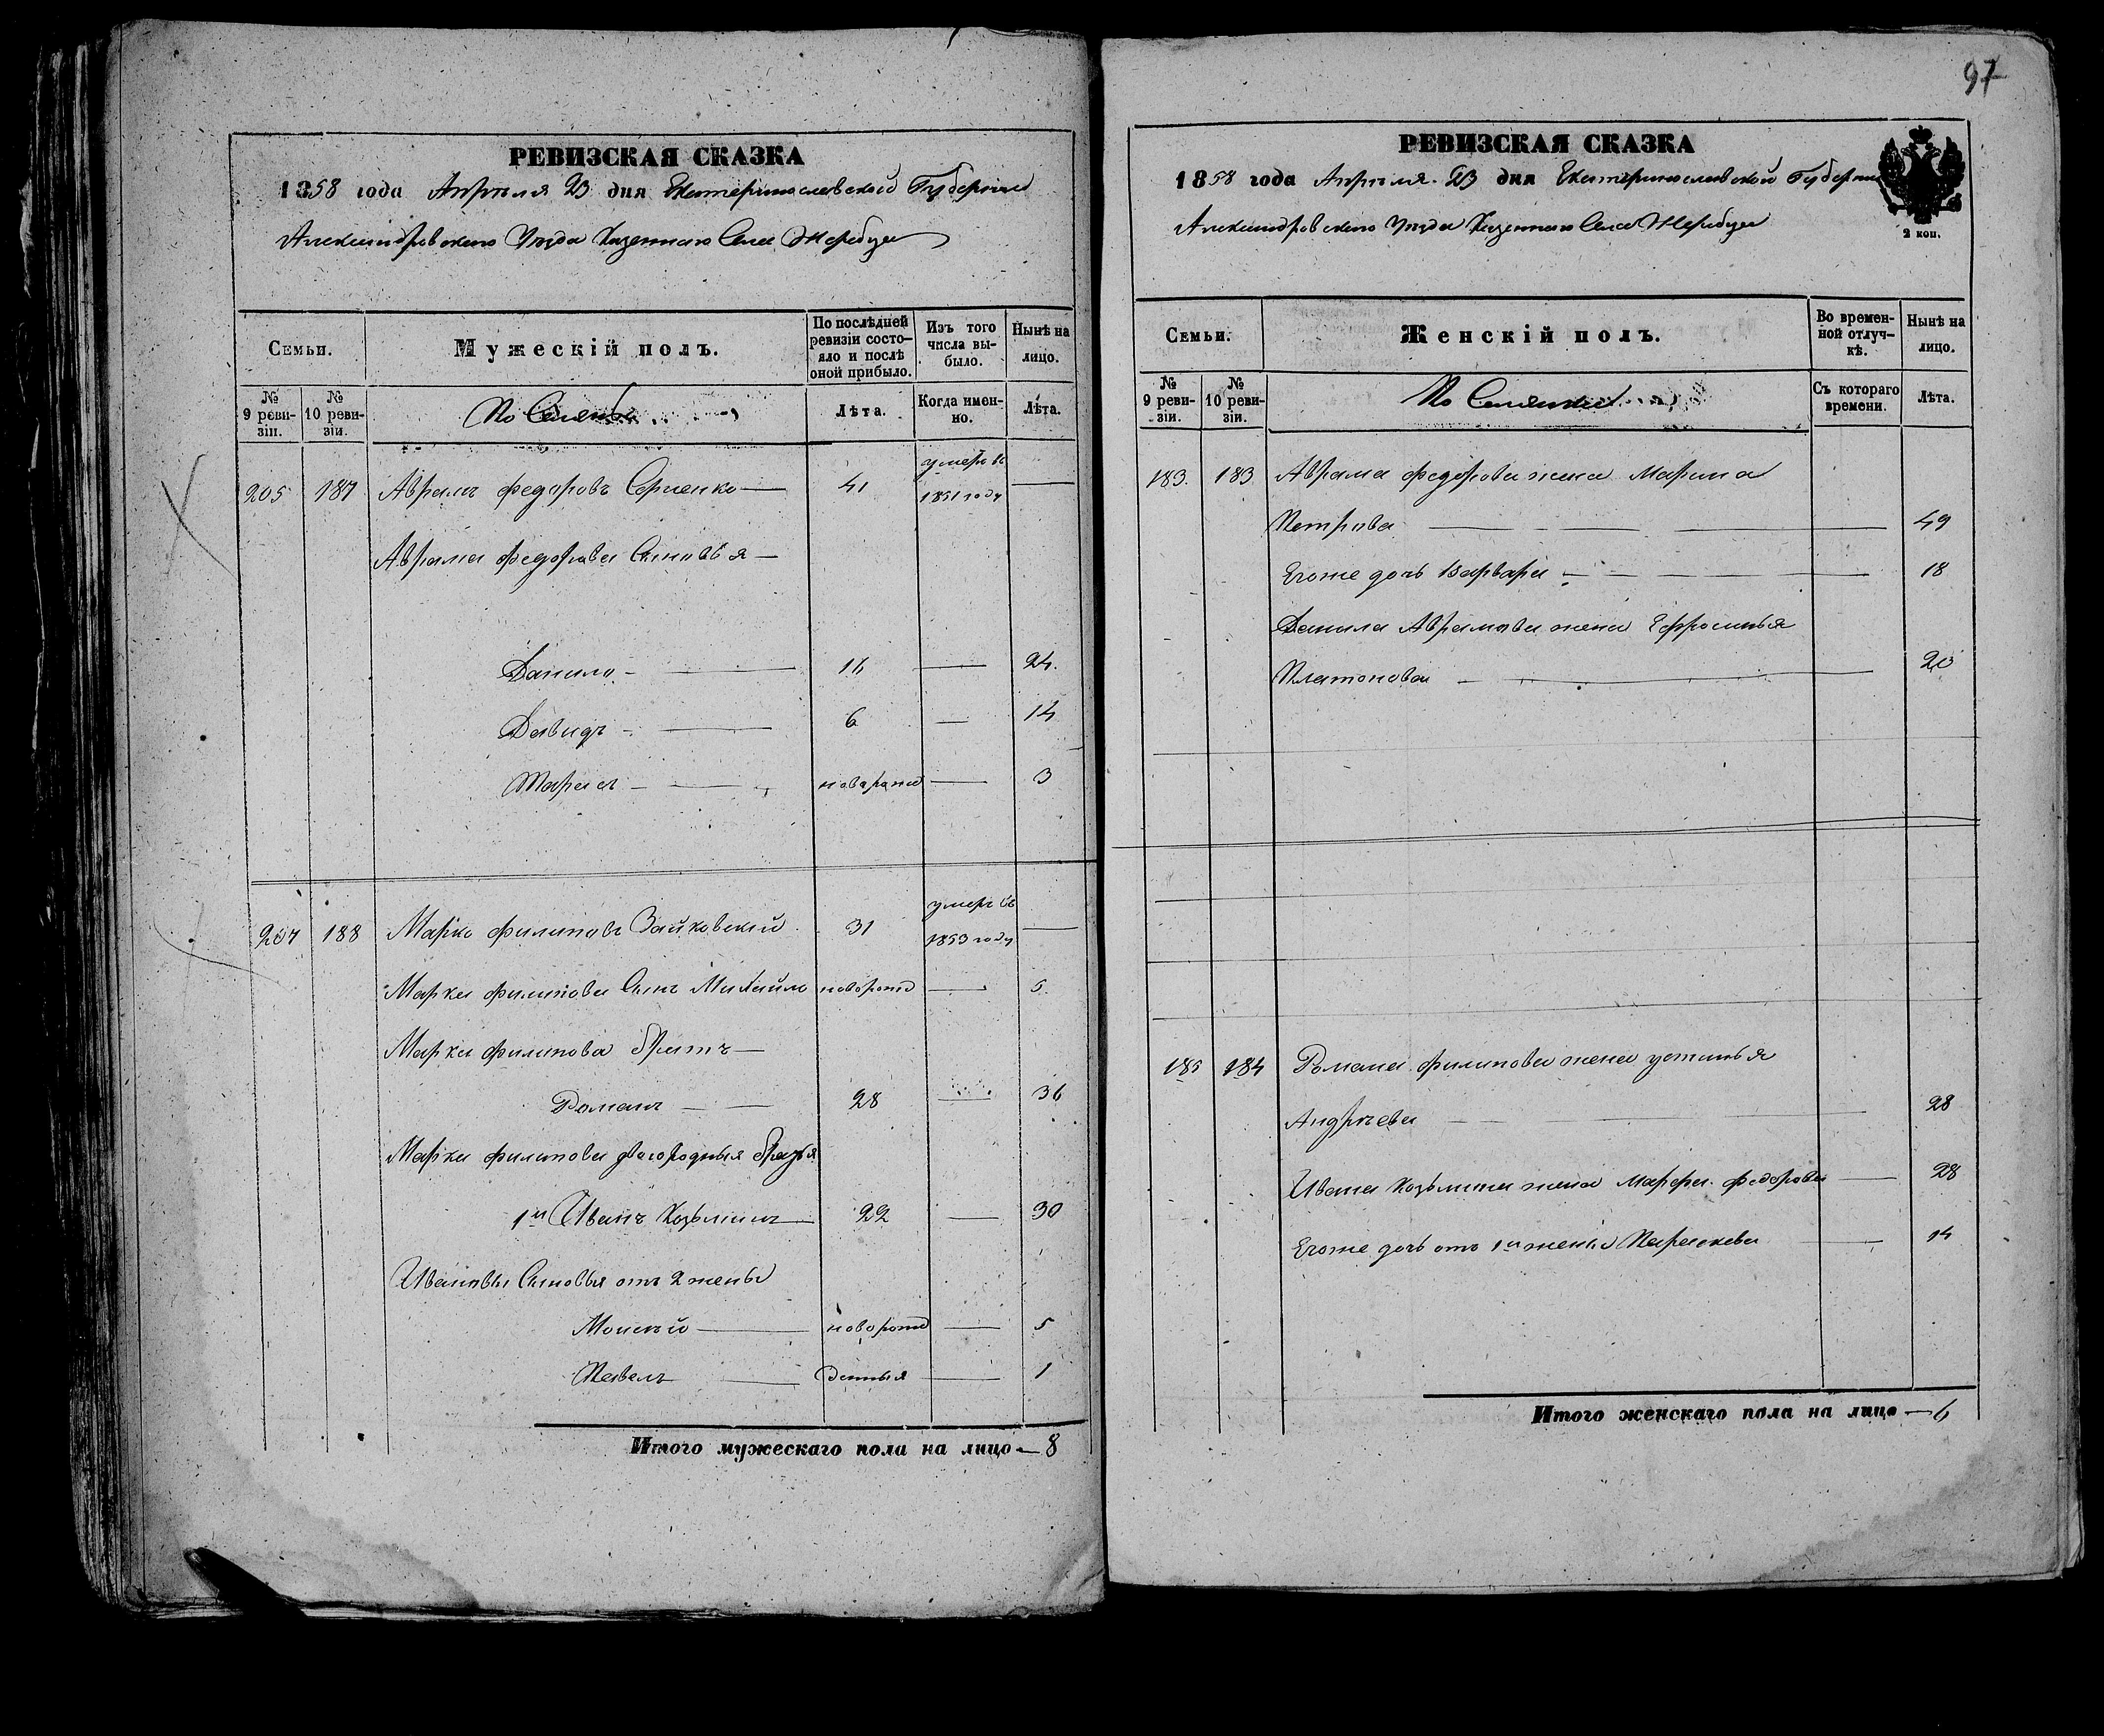 РЕВИЗСКАЯ СКАЗКА
1858 года Апреля 23 дня Екатеринославской Губернии
Александровского Уезда Казенного Села Жеребца
Семьи.
Мужескій полъ.
По послѣдней ревизіи состояло и послѣ оной прибыло.
Изъ того числа выбыло.
Нынѣ на лицо.
№ 9 ревизіи.
№ 10 ревизіи.
Лѣта.
Когда именно.
Лѣта.
205 187 Аврамъ Федоровъ Сериенко 41 умеръ въ 1851 году
Аврама Федорова Сыновья
Данило 16 24.
Давидъ 6 14
Тарасъ новорожд 3
207 188 Марко Филиповъ Зайковский 31 умеръ въ 1853 году
Марка Филипова Сынъ Михайло новорожд 5.
Марка Филипова братъ
Романъ 28 36
Марка Филипова двоюродныя братья
1й Иванъ Козьминъ 22 30
Ивановы Сыновья отъ 2 жены
Моисей новорожд 5
Павелъ денныя 1
Итого мужескаго пола на лицо 8
97
РЕВИЗСКАЯ СКАЗКА
1858 года Апреля 23 дня Екатеринославской Губернии
Александровского Уезда Казенного Села Жеребца
2 коп.
Семьи.
Женскій полъ.
Во временной отлучкѣ.
Нынѣ на лицо.
№ 9 ревизіи.
№ 10 ревизіи.
Съ котораго времени.
Лѣта.
183. 183 Аврама Федорова жена Марина
Петрова 49
Егоже дочь Варвара 18
Данила Аврамова жена Ефросинья
Платонова 20
185 184 Романа Филипова жена устинья
Андреева 28
Ивана Козьмина жена Марфа Федорова 28
Егоже дочь отъ 1й жены Параскева 14
Итого женскаго пола на лицо 6